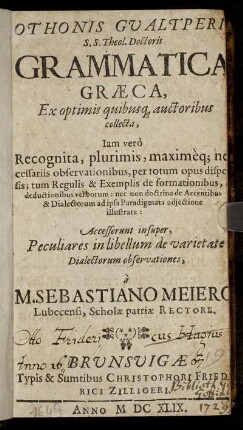 OTHONIS GVALTPERI
S. S. Theol. Doctoris
GRAMMATICA
GRÆCA,
Ex optimis quibusq; auctoribus
collecta,
Iam verò
Recognita, plurimis, maximèq; ne-
cessariis observationibus, per totum opus disper-
sis; tum Regulis & Exemplis de formationibus,
deductionibus verborum: nec non doctrina de Accentibus
& Dialectorum ad ipsa Paradigmata adjectione
illustrata:
Accesserunt insuper,
Peculiares in libellum de varietate
Dialectorum observationes,
à
M. SEBASTIANO MEIERO
Lubecensi, Scholæ patriæ RECTORE.
Otto Frider
Anno 16
BRUNSVIGÆ
Typis & Sumtibus CHRISTOPHORI FRIED
RICI ZILLIGERI.
ANNO M DC XLIX.
1649